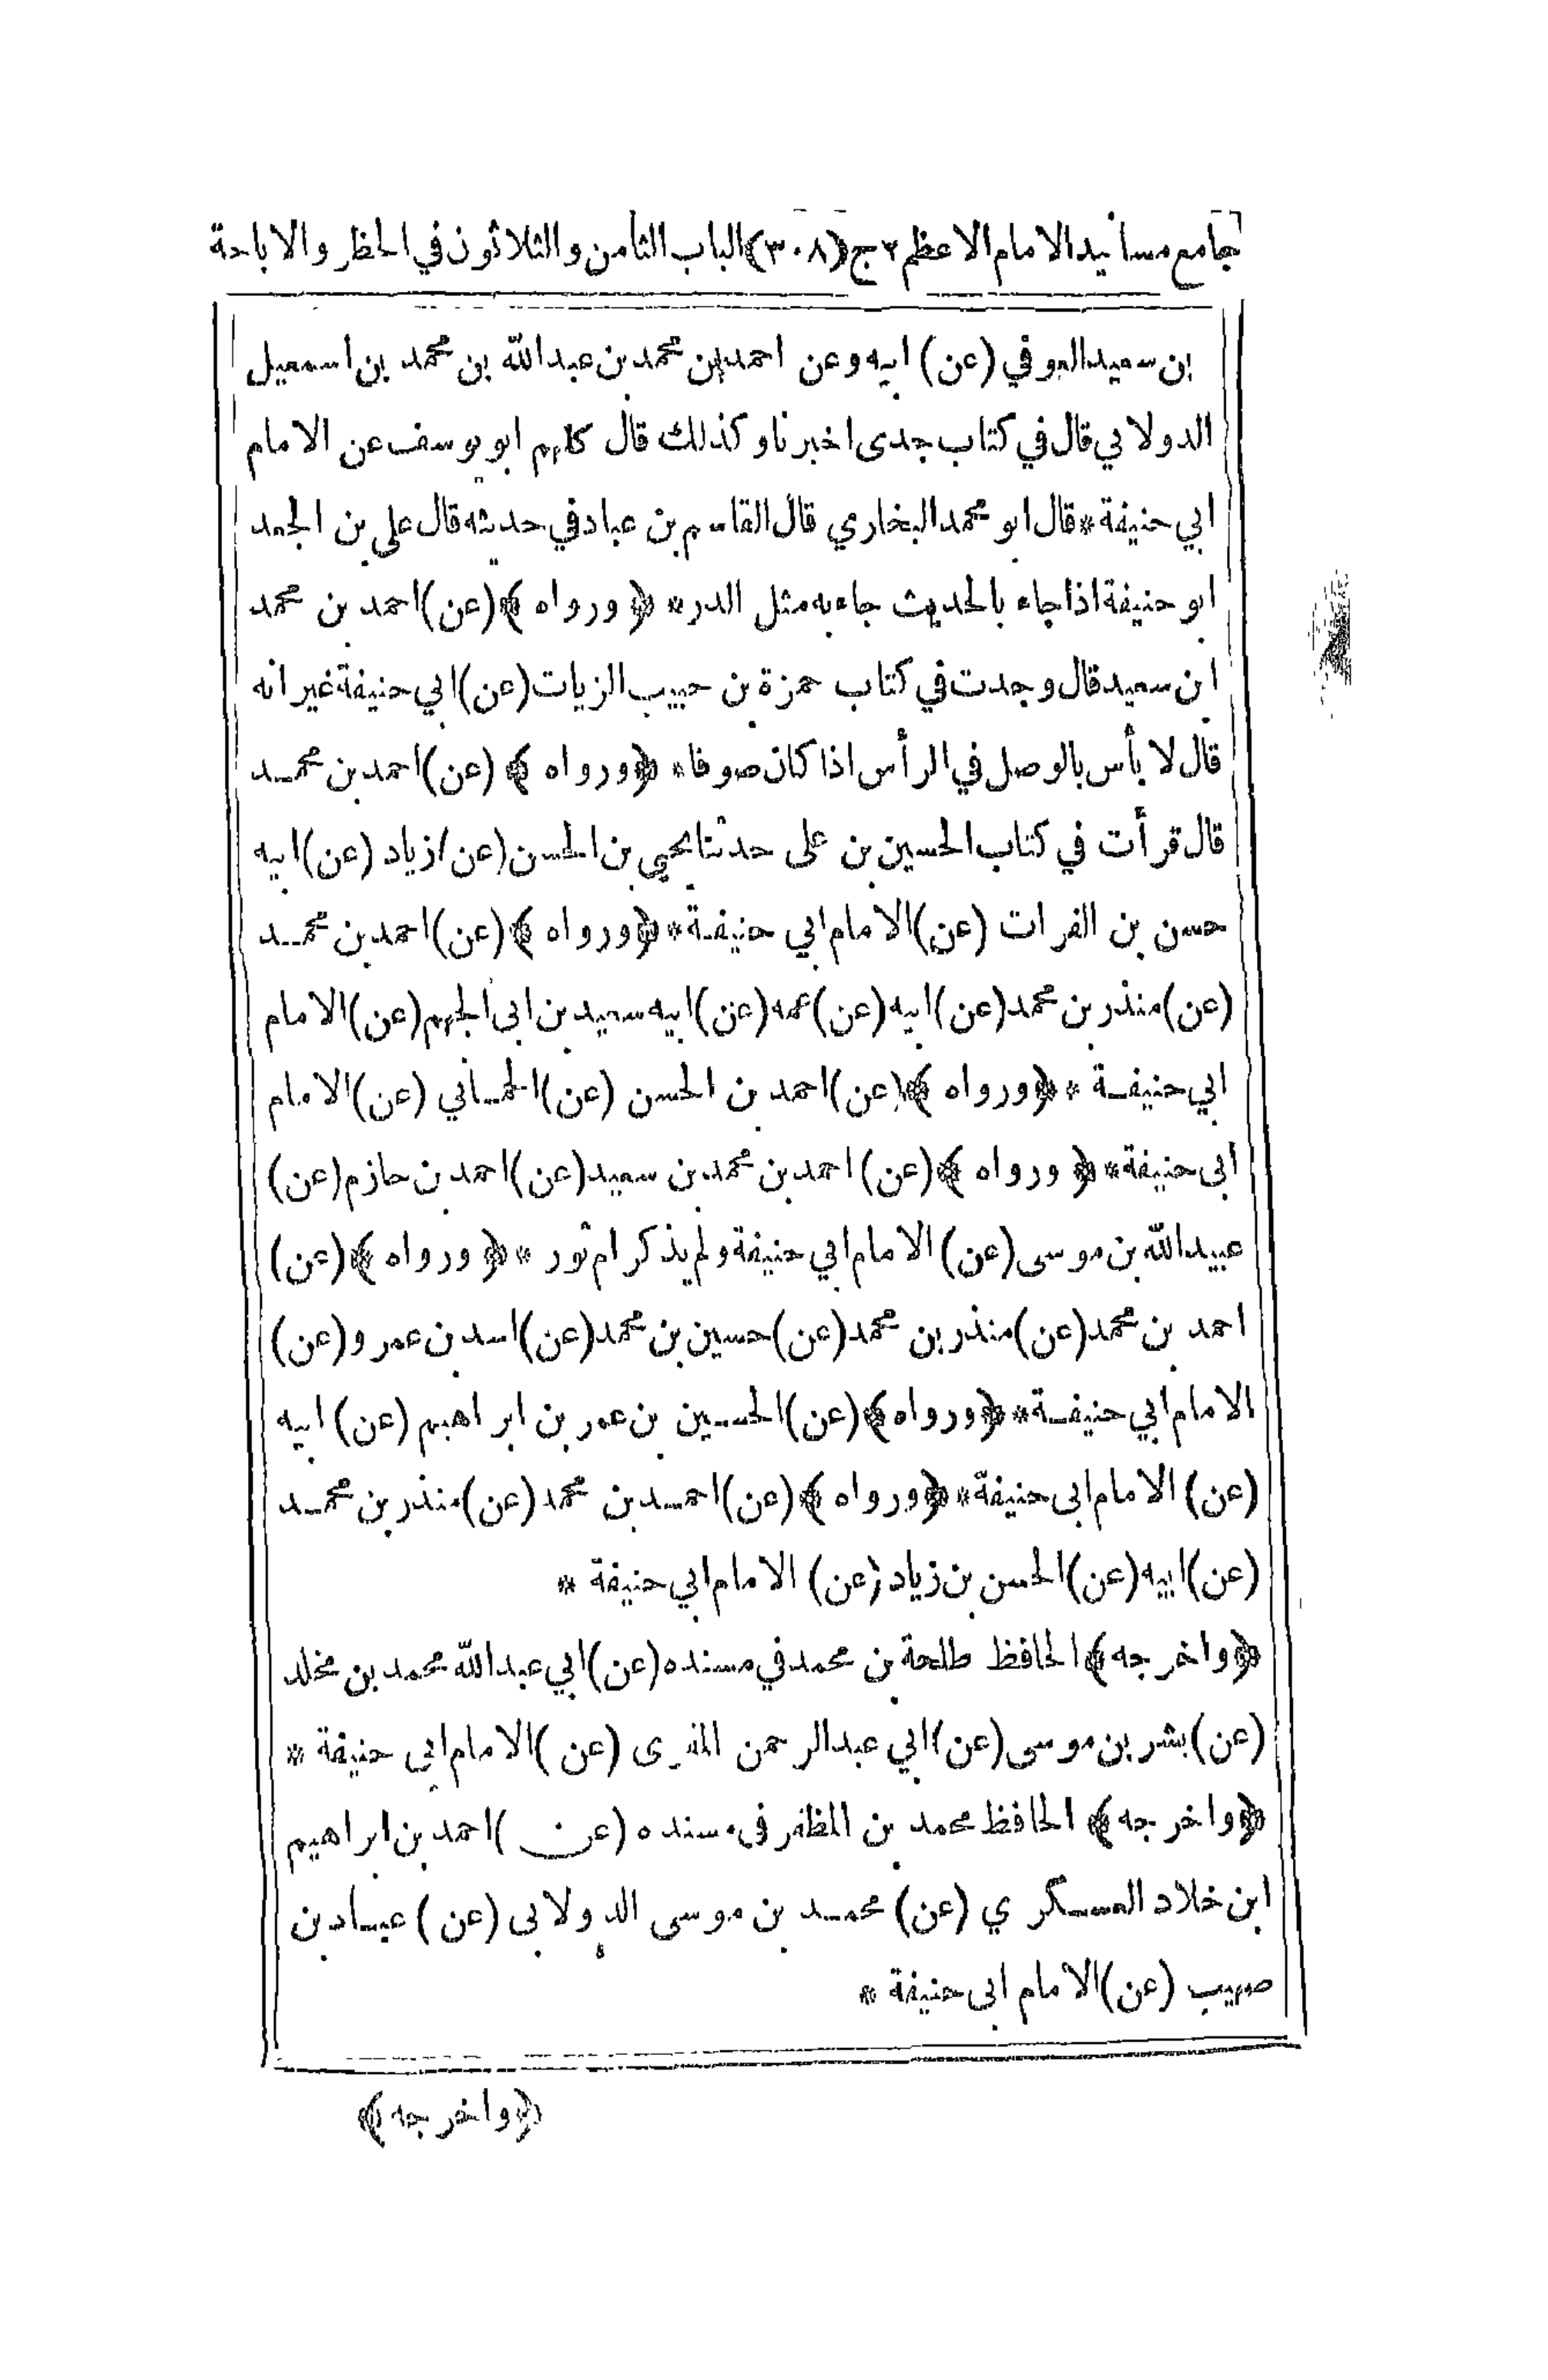 جامع مسانيد الامام الاعظم ٢ ج (٣٠٨) الباب الثامن والثلاثون في الحظر والاباحة
بن سعيد العوفي (عن) ابيه وعن احمد بن محمد بن عبدالله بن محمد بن اسمعيل
الدولابي قال في كتاب جدى اخبرنا وكذلك قال كلهم ابو يوسف عن الامام
ابي حنيفة * قال ابو محمد البخاري قال القاسم بن عباد في حديثه قال على بن الجعد
ابو حنيفة اذا جاء بالحديث جاء به مثل الدر * ﴿ ورواه ﴾ (عن) احمد بن محمد
ابن سعيد قال وجدت في كتاب حمزة بن حبيب الزيات (عن) ابي حنيفة غير انه
قال لا بأس بالوصل في الرأس اذا كان صوفا * ﴿ورواه ﴾ (عن) احمد بن محمد
قال قرأت في كتاب الحسين بن على حدثنا يحيى بن الحسن (عن) زياد (عن) ابيه
حسن بن الفرات (عن) الامام ابي حنيفة * ﴿ورواه ﴾ (عن) احمد بن محمد
(عن) منذر بن محمد (عن) ابيه (عن) عمه (عن) ابيه سعيد بن ابى الجهم (عن) الامام
ابي حنيفة * ﴿ورواه ﴾ (عن) احمد بن الحسن (عن) الحماني (عن) الامام
ابى حنيفة * ﴿ ورواه ﴾ (عن) احمد بن محمد بن سعيد (عن) احمد بن حازم (عن)
عبيدالله بن موسى (عن) الامام ابي حنيفة ولم يذكر ام ثور * ﴿ ورواه ﴾ (عن)
احمد بن محمد (عن) منذر بن محمد (عن) حسين بن محمد (عن) اسد بن عمرو (عن)
الامام ابي حنيفة * ﴿ورواه﴾ (عن) الحسين بن عمر بن ابراهيم (عن) ابيه
(عن) الامام ابى حنيفة * ﴿ورواه ﴾ (عن) احمد بن محمد (عن) منذر بن محمد
(عن) ابيه (عن) الحسن بن زياد (عن) الامام ابي حنيفة *
﴿واخرجه﴾ الحافظ طلحة بن محمد في مسنده (عن) ابي عبدالله محمد بن مخلد
(عن) بشر بن موسى (عن) ابي عبدالرحمن المقرى (عن) الامام ابى حنيفة *
﴿واخرجه﴾ الحافظ محمد بن المظفر فى مسنده (عن) احمد بن ابراهيم
ابن خلاد العسكري (عن) محمد بن موسى الدولابى (عن) عباد بن
صهيب (عن) الامام ابى حنيفة *
﴿واخرجه﴾